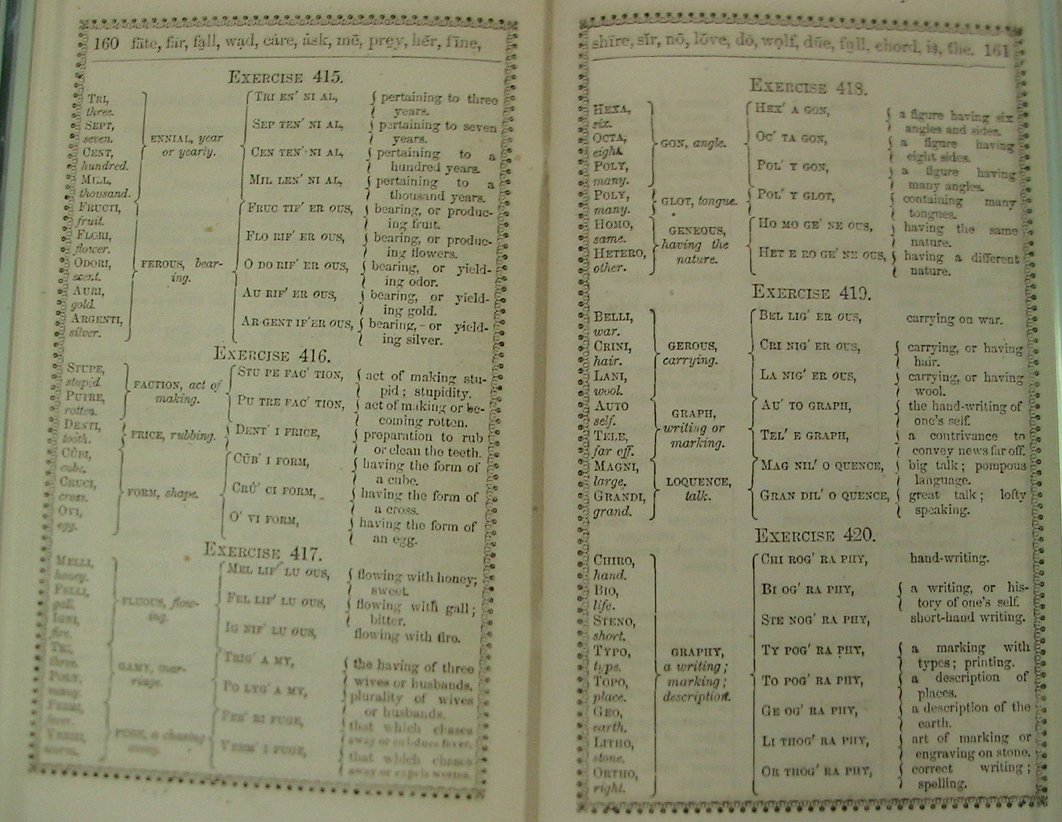 160 fāte, fär, fạll, wạd, câre, ȧsk, mē, prey, hẽr, fīne,
EXERCISE 415.
TRI,
three.
SEPT,
seven.
CENT,
hundred.
MILL,
thousand.
ENNIAL, year
or yearly.
TRI EN′ NI AL,
SEP TEN′ NI AL,
CEN TEN′ NI AL,
MIL LEN′ NI AL,
pertaining to three
years.
pertaining to seven
years.
pertaining to a
hundred years.
pertaining to a
thousand years.
FRUCTI,
fruit.
FLORI,
flower.
ODORI,
scent.
AURI,
gold.
ARGENTI,
silver.
FEROUS, bear-
ing.
FRUC TIF′ ER OUS,
FLO RIF′ ER OUS,
O DO RIF′ ER OUS,
AU RIF′ ER OUS,
AR GENT IF′ ER OUS,
bearing, or produc-
ing fruit.
bearing, or produc-
ing flowers.
bearing, or yield-
ing odor.
bearing, or yield-
ing gold.
bearing, or yield-
ing silver.
EXERCISE 416.
STUPE,
stupid.
PUTRE,
rotten.
FACTION, act of
making.
STU PE FAC′ TION,
PU TRE FAC′ TION,
act of making stu-
pid; stupidity.
act of making or be-
coming rotten.
DENTI,
tooth.
FRICE, rubbing.
DENT′ I FRICE,
preparation to rub
or clean the teeth.
CŪBI,
cube.
CRUCI,
cross.
OVI,
egg.
FORM, shape.
CŪB′ I FORM,
CRṲ′ CI FORM,
O′ VI FORM,
having the form of
a cube.
having the form of
a cross.
having the form of
an egg.
EXERCISE 417.
MELLI,
honey.
FELLI,
gall.
IGNI,
fire.
FLUOUS, flow-
ing.
MEL LIF′ LU OUS,
FEL LIF′ LU OUS,
IG NIF′ LU OUS,
flowing with honey;
sweet.
flowing with gall;
bitter.
flowing with fire.
TRI,
three.
POLY,
many.
GAMY, mar-
riage.
TRIG′ A MY,
PO LYG′ A MY,
the having of three
wives or husbands.
plurality of wives
or husbands.
FEBRI,
fever.
VERMI,
worm.
FUGE, a chasing
away.
FEB′ RI FUGE,
VERM′ I FUGE,
that which chases
away or subdues fever.
that which chases
away or expels worms.
shīre, sīr, nō, lȯve, dọ, wọlf, dūe, fụll, chord, iṣ, the. 161
EXERCISE 418.
HEXA,
six.
OCTA,
eight.
POLY,
many.
GON, angle.
HEX′ A GON,
OC′ TA GON,
POL′ Y GON,
a figure having six
angles and sides.
a figure having
eight sides.
a figure having
many angles.
POLY,
many.
GLOT, tongue.
POL′ Y GLOT,
containing many
tongues.
HOMO,
same.
HETERO,
other.
GENEOUS,
having the
nature.
HO MO GE′ NE OUS,
HET E RO GE′ NE OUS,
having the same
nature.
having a different
nature.
EXERCISE 419.
BELLI,
war.
CRINI,
hair.
LANI,
wool.
GEROUS,
carrying.
BEL LIG′ ER OUS,
CRI NIG′ ER OUS,
LA NIG′ ER OUS,
carrying on war.
carrying, or having
hair.
carrying, or having
wool.
AUTO
self.
TELE,
far off.
GRAPH,
writing or
marking.
AU′ TO GRAPH,
TEL′ E GRAPH,
the hand-writing of
one's self.
a contrivance to
convey news far off.
MAGNI,
large.
GRANDI,
grand.
LOQUENCE,
talk.
MAG NIL′ O QUENCE,
GRAN DIL′ O QUENCE,
big talk; pompous
language.
great talk; lofty
speaking.
EXERCISE 420.
CHIRO,
hand.
BIO,
life.
STENO,
short.
TYPO,
type.
TOPO,
place.
GEO,
earth.
LITHO,
stone.
ORTHO,
right.
GRAPHY,
a writing;
marking;
description.
CHI ROG′ RA PHY,
BI OG′ RA PHY,
STE NOG′ RA PHY,
TY POG′ RA PHY,
TO POG′ RA PHY,
GE OG′ RA PHY,
LI THOG′ RA PHY,
OR THOG′ RA PHY,
hand-writing.
a writing, or his-
tory of one's self.
short-hand writing.
a marking with
types; printing.
a description of
places.
a description of the
earth.
art of marking or
engraving on stone.
correct writing;
spelling.